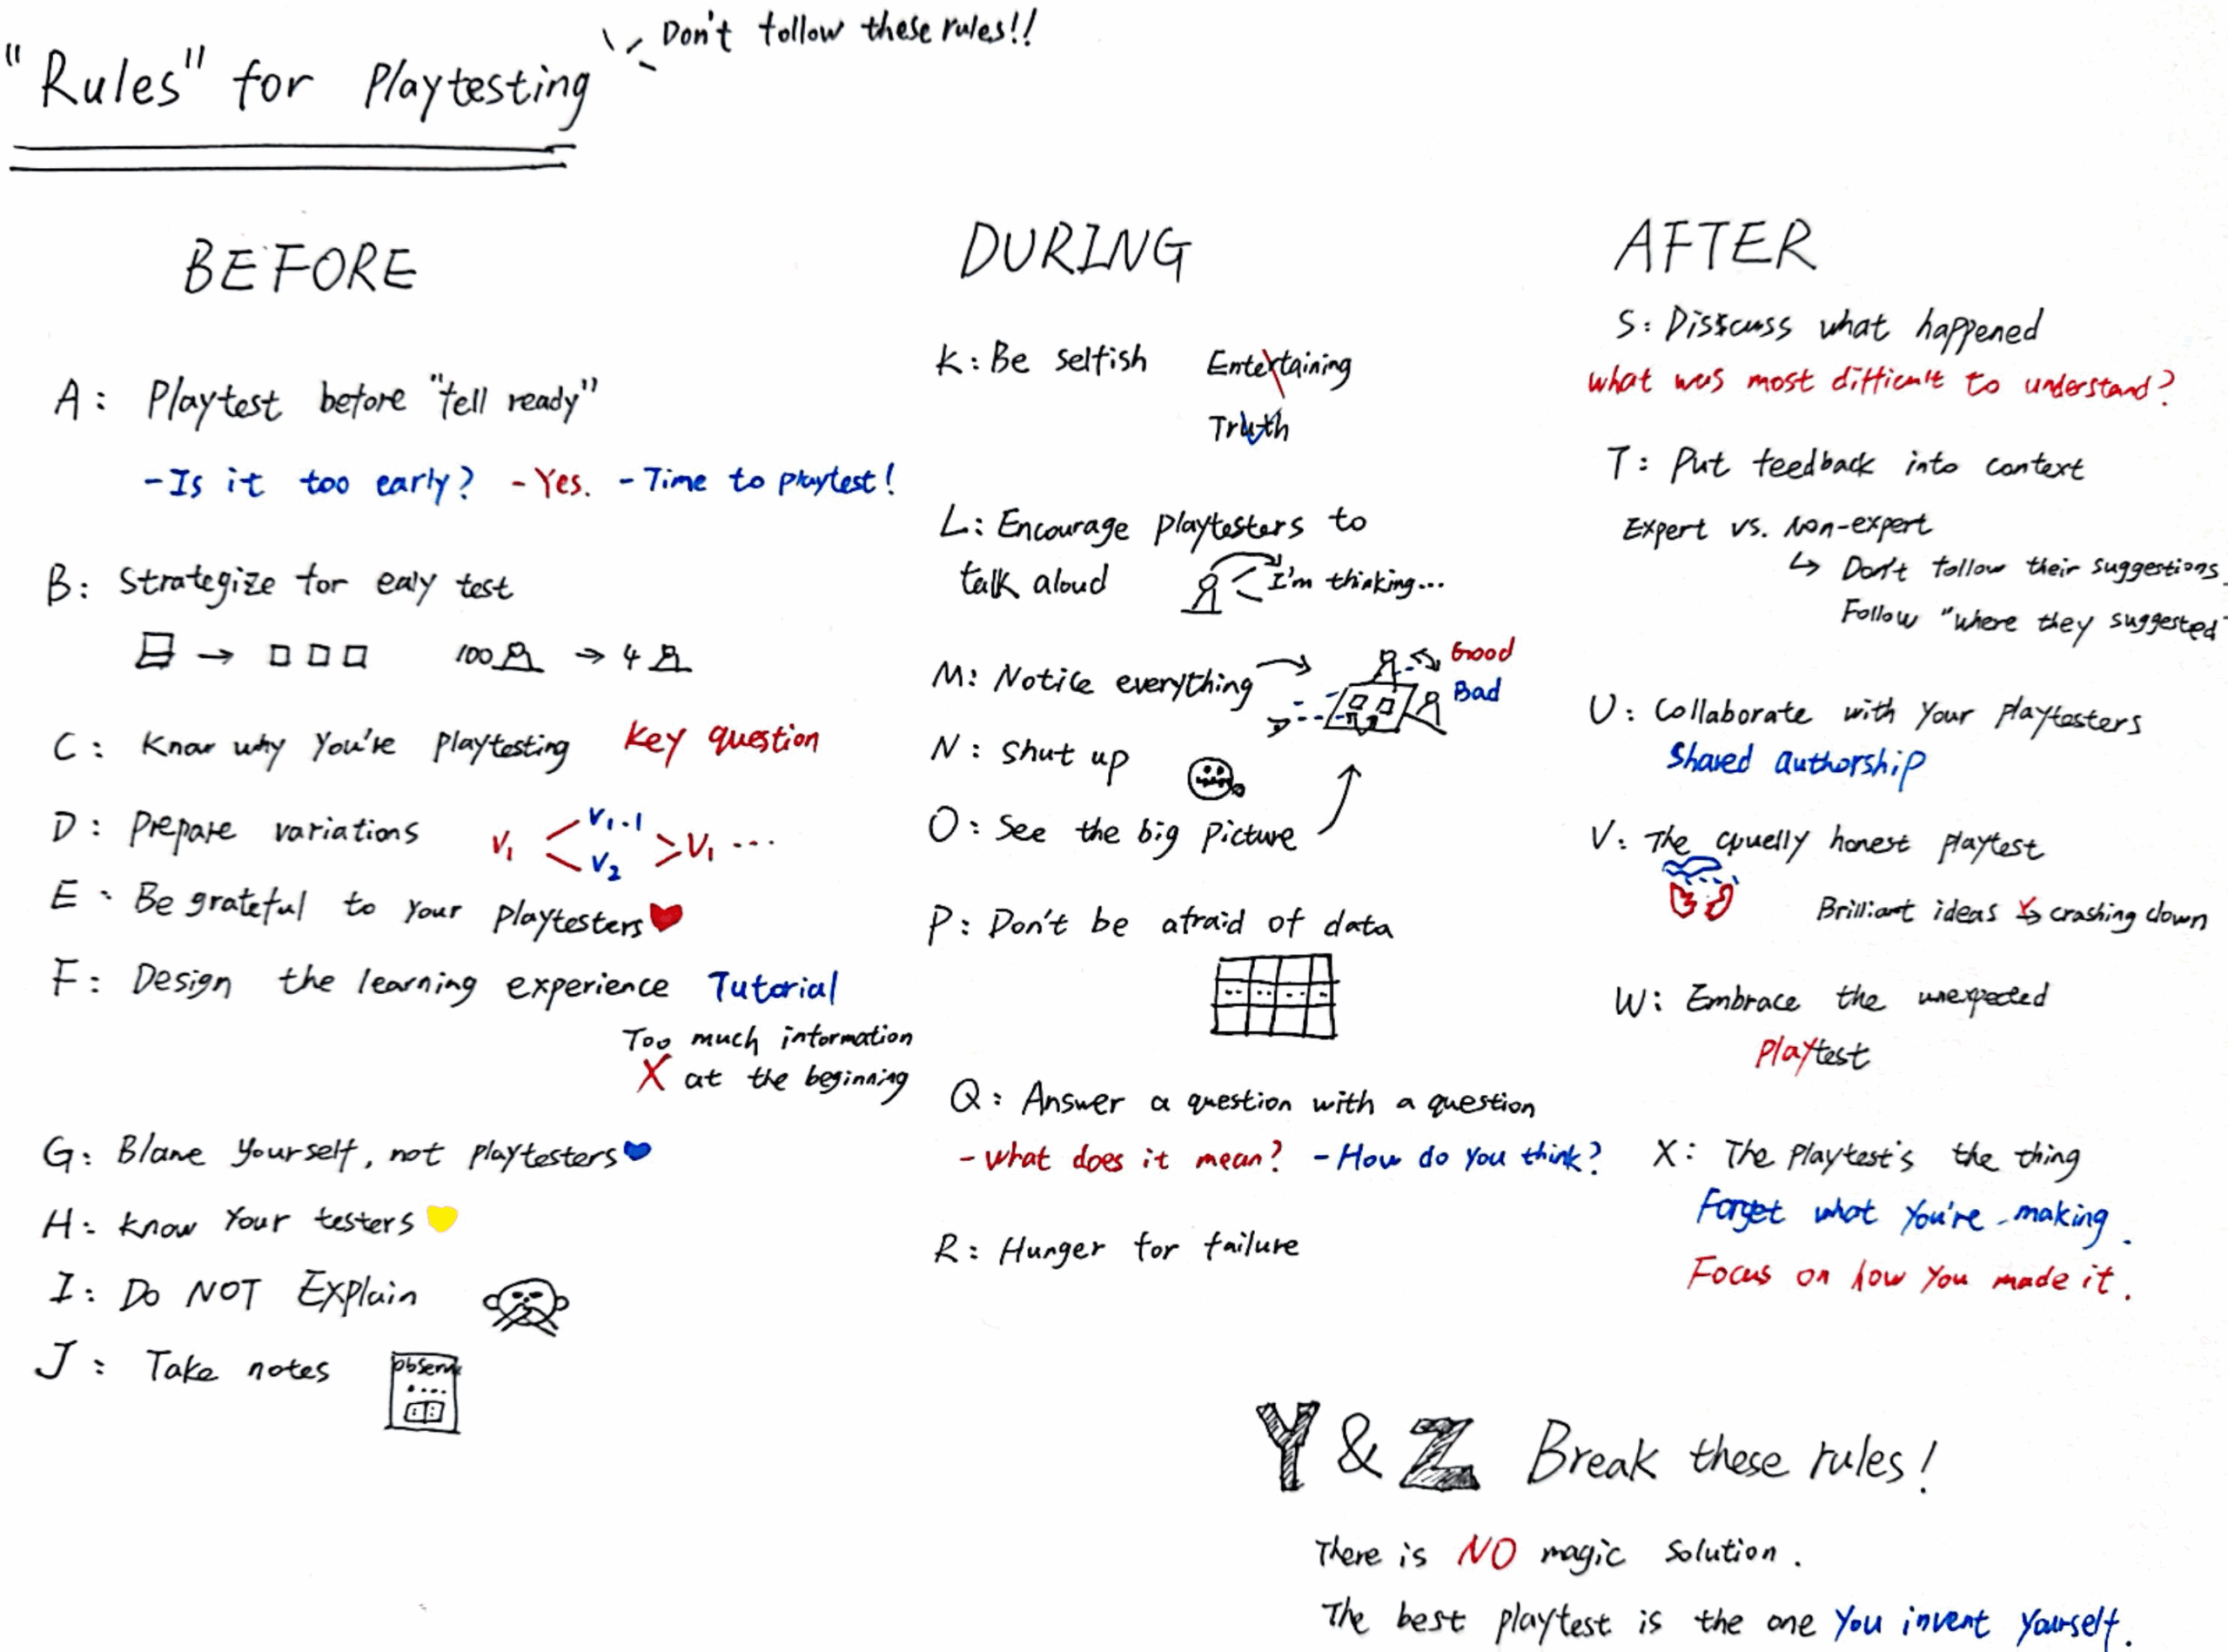 "Rules" for Playtesting
Don't follow these rules!!
BEFORE
A: Playtest before "fell ready"
-Is it too early? -Yes. -Time to playtest!
B: Strategize for ealy test
100 → 4
C: Know why you're playtesting Key question
D: Prepare variations V1 < V1.1 V2 > V1 ...
E: Be grateful to your playtesters
F: Design the learning experience Tutorial
Too much information
X at the beginning
G: Blame yourself, not playtesters
H: Know your testers
I: Do NOT Explain
J: Take notes
DURING
K: Be selfish Entertaining
Truth
L: Encourage playtesters to
talk aloud I'm thinking...
M: Notice everything Good
Bad
N: Shut up
O: See the big picture
P: Don't be afraid of data
Q: Answer a question with a question
-What does it mean? -How do you think?
R: Hunger for failure
AFTER
S: Disscuss what happened
What was most difficult to understand?
T: Put feedback into context
Expert vs. Non-expert
↳ Don't follow their suggestions.
Follow "where they suggested"
U: Collaborate with your playtesters
Shared authorship
V: The honest playtest
Brilliant ideas crashing down
W: Embrace the unexpected
Playtest
X: The playtest's the thing
Forget what you're making.
Focus on how you made it.
Y & Z Break these rules!
There is NO magic solution.
The best playtest is the one you invent yourself.